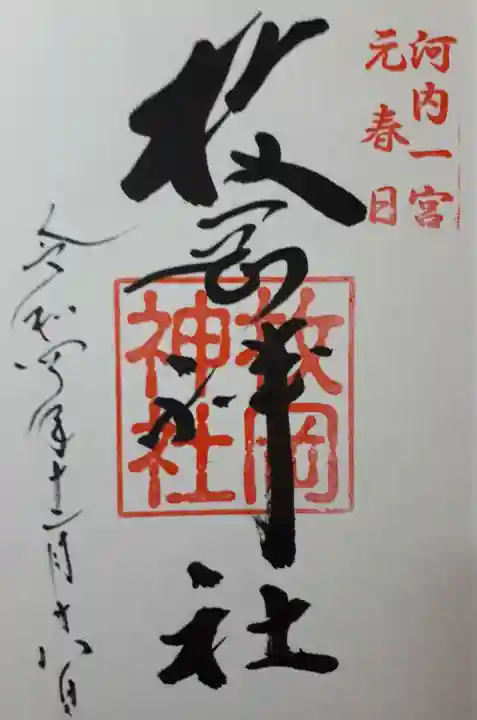 河内一宮
元春日
枚岡神社
枚岡
神社
令和四年十二月十八日